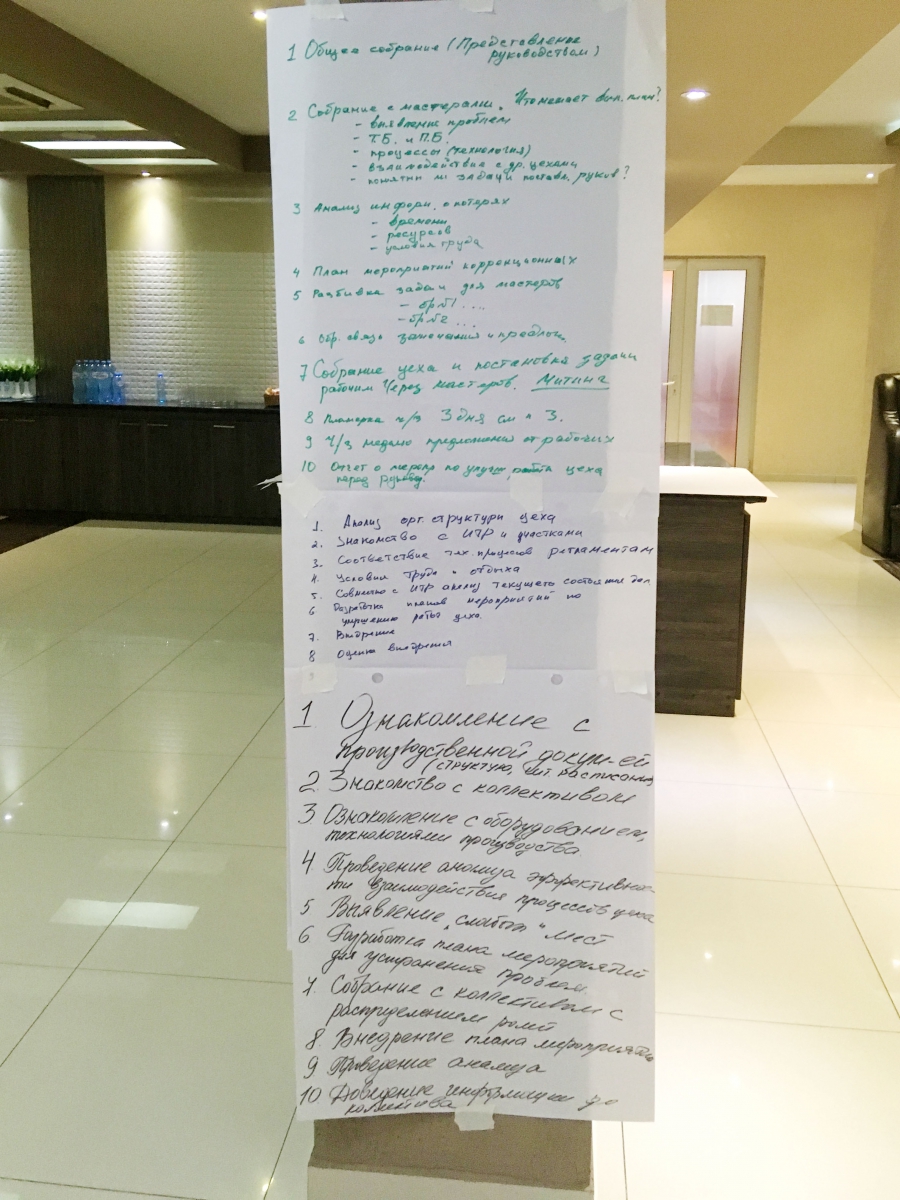 1 Общее собрание (Представление
руководством)
2 Собрание с мастерами. Что мешает вып. план?
- выявление проблем
- Т.Б. и П.Б.
- процессы (технология)
- взаимодействие с др. цехами
- понятны ли задачи поставл. руков?
3 Анализ информ. о потерях
- времени
- ресурсов
- условия труда
4 План мероприятий коррекционных
5 Разбивка задач для мастеров
- бр №1 ...
- бр №2 ...
6 Обр. связь замечания и предлож.
7 Собрание цеха и постановка задачи
рабочим через мастеров. Митинг
8 Планерка 3 дня см 3.
9 Ч/з неделю предложения от рабочих
10 Отчет о меропр по улучш работы цеха
перед руковод.
1. Анализ орг. структуры цеха
2. Знакомство с ИТР и участками
3. Соответствие тех. процессов регламентам
4. Условия труда и отдыха
5. Совместно с ИТР анализ текущего состояния дел
6 Разработка планов мероприятий по
улучшению работы цеха.
7. Внедрение
8 Оценка внедрения
9
1. Ознакомление с
производственной докум-ей
(структура, шт. расписание)
2. Знакомство с коллективом
3 Ознакомление с оборудованием,
технологиями производства.
4 Проведение анализа эффективнос-
ти взаимодействия процессов цеха
5 Выявление „слабых" мест
6 Разработка плана мероприятий
для устранения проблем
7. Собрание с коллективом с
распределением ролей
8. Внедрение плана мероприятий
9 Проведение анализа
10 Доведение информации до
коллектива